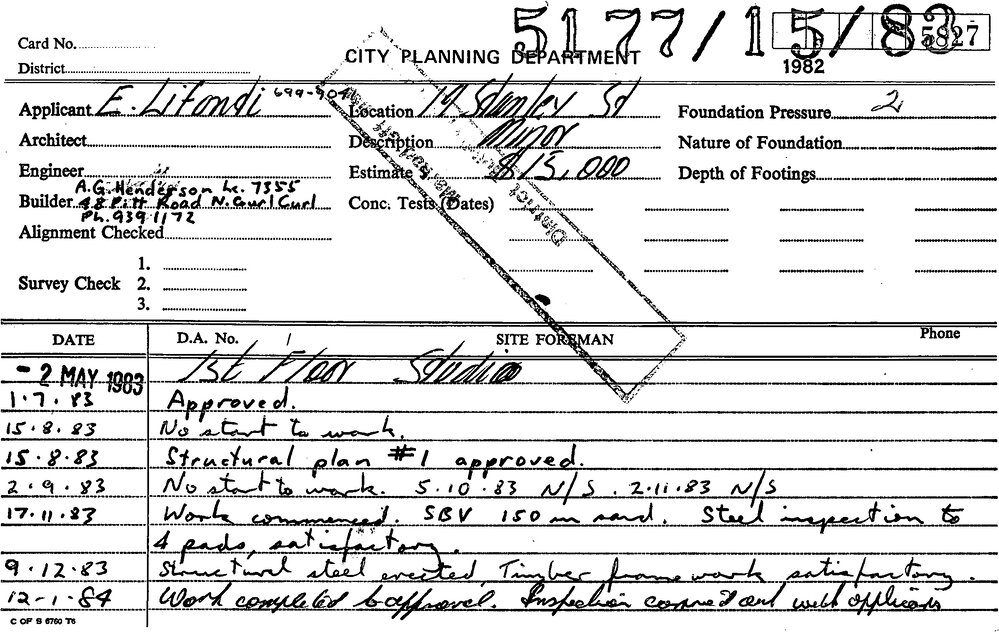 5177/15/83
5827
Card No.
CITY PLANNING DEPARTMENT
1982
District
Applicant E. Lifondi 699-904 Location 19 Stanley St Foundation Pressure 2
Architect Description Minor Nature of Foundation
Engineer Estimate $ $15,000 Depth of Footings
A.G. Henderson Lc. 7355
Builder 48 Pitt Road N. Curl Curl Conc. Tests (Dates)
Ph. 939 1172
Alignment Checked
District
1.
Survey Check 2.
3.
DATE D.A. No. SITE FOREMAN Phone
- 2 MAY 1983 1st Floor Studio
1.7.83 Approved.
15.8.83 No start to work.
15.8.83 Structural plan #1 approved.
2.9.83 No start to work. 5.10.83 N/S. 2.11.83 N/S
17.11.83 Work commenced. SBV 150 m sand. Steel inspection to
4 pads, satisfactory.
9.12.83 Structural steel erected, Timber frame work satisfactory.
12-1-84 Work completed to approval. Inspection carried out with applicants
C OF S 6760 T6